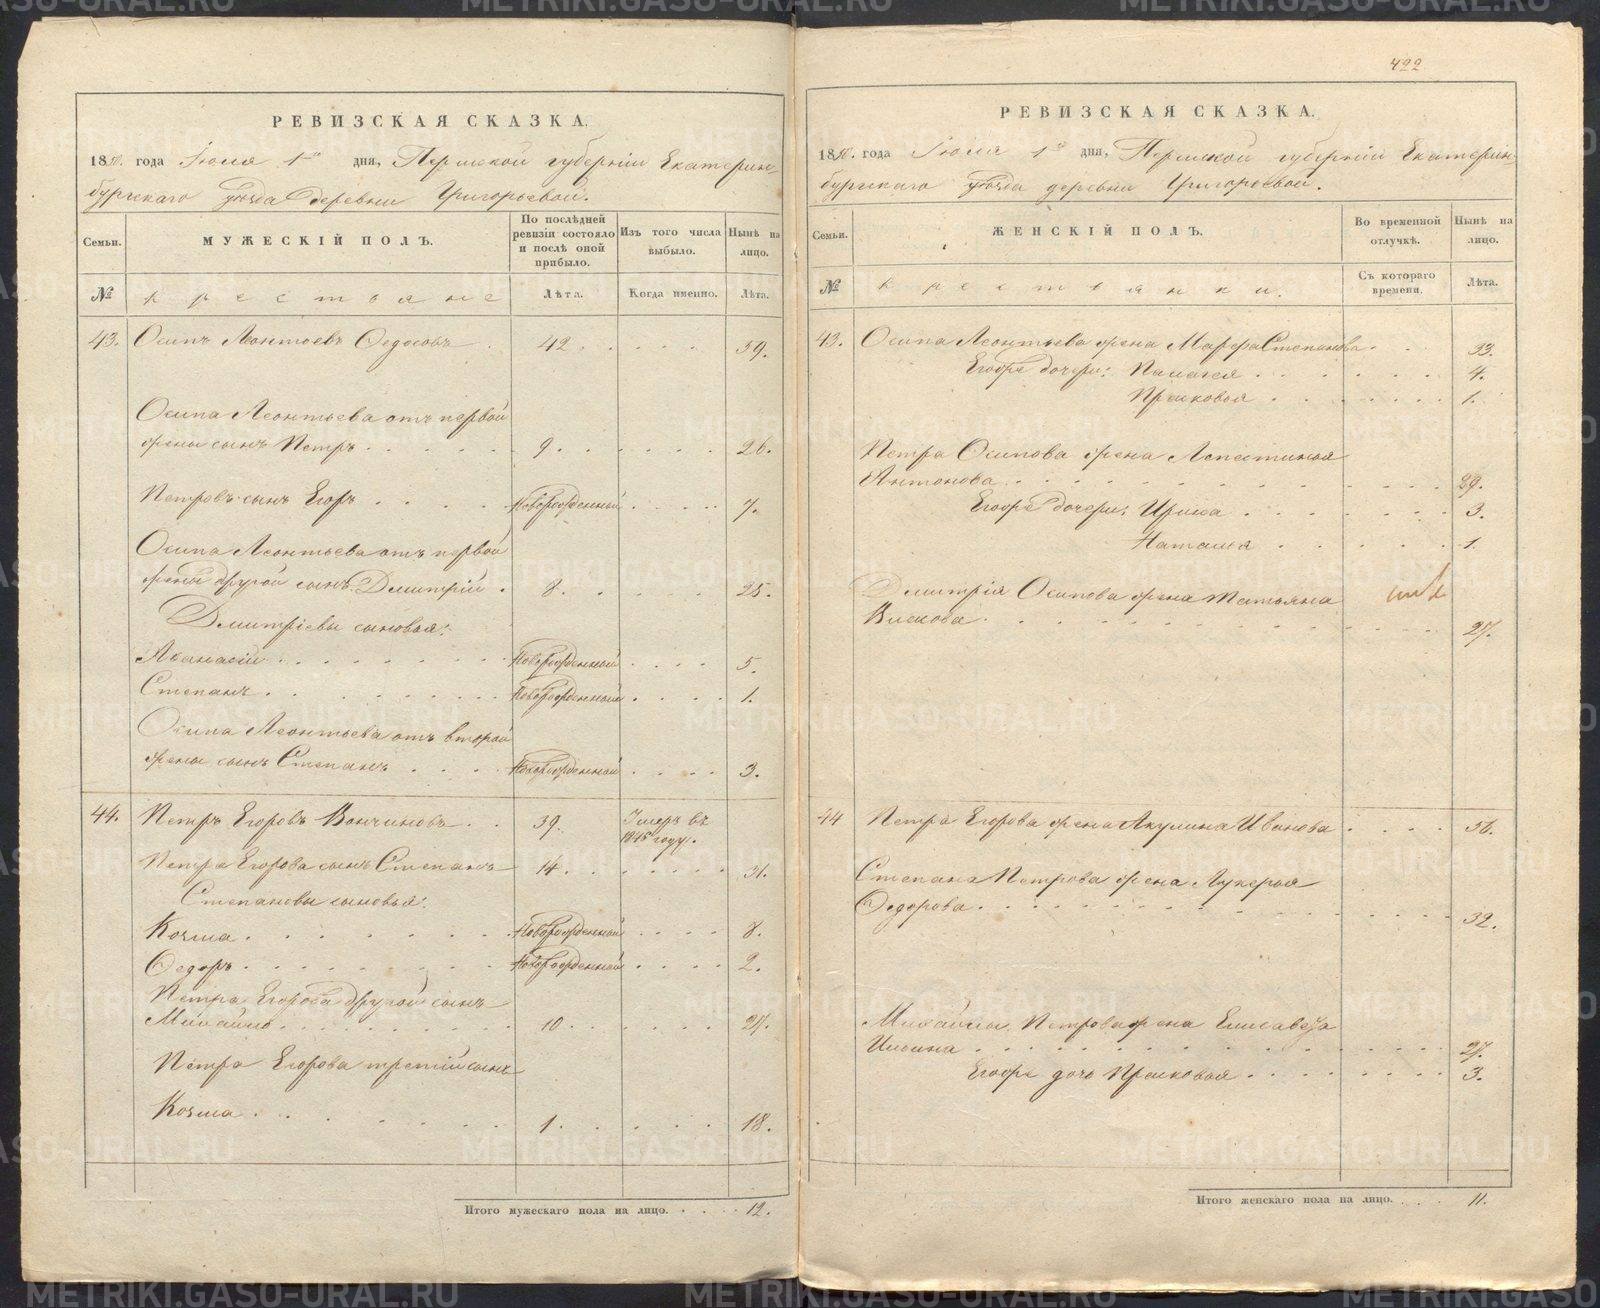 РЕВИЗСКАЯ СКАЗКА.
1850. года Іюля 1го дня, Пермской губерніи Екатерин-
бургскаго уѣзда деревни Григорьевой.
Семьи. МУЖЕСКІЙ ПОЛЪ. По послѣдней ревизіи состояло и послѣ оной прибыло. Изъ того числа выбыло. Нынѣ на лицо.
№ крестьяне Лѣта. Когда именно. Лѣта.
43. Осипъ Леонтьевъ Федосовъ . 42 . . . . . 59.
Осипа Леонтьева отъ первой
жены сынъ Петръ . . . . . . 9. . . . . . 26.
Петровъ сынъ Егоръ . . . . Новорожденный . . . . 7.
Осипа Леонтьева отъ первой
жены другой сынъ Дмитрій . 8. . . . . . 25.
Дмитріевы сыновья:
Афанасій . . . . . . . . Новорожденный . . . . 5.
Степанъ . . . . . . . . Новорожденный . . . . 1.
Осипа Леонтьева отъ второй
жены сынъ Степанъ . . . . Новорожденный . . . . 3.
44. Петръ Егоровъ Ванчиновъ . . 39. Умеръ въ
1845 году.
Петра Егорова сынъ Степанъ 14 . . . . . . . 31.
Степановы сыновья:
Козма . . . . . . . . Новорожденный . . . . 8.
Федоръ . . . . . . . . Новорожденный . . . . 2.
Петра Егорова другой сынъ
Михайло . . . . . . . . 10 . . . . . . 27.
Петра Егорова третій сынъ
Козма . . . . . . . 1. . . . . . 18.
Итого мужескаго пола на лицо. . . . . 12.
422
РЕВИЗСКАЯ СКАЗКА.
1850. года Іюля 1го дня, Пермской губерніи Екатерин-
бургскаго уѣзда деревни Григорьевой.
Семьи. ЖЕНСКІЙ ПОЛЪ. Во временной отлучкѣ. Нынѣ на лицо.
№ крестьянки. Съ котораго времени. Лѣта.
43. Осипа Леонтьева жена Марфа Степанова . . . 33.
Егожъ дочери: Палагея . . . . . . . 4.
Прасковья . . . . . . . 1.
Петра Осипова жена Апестинья
Антонова . . . . . . . . . . . . 29.
Егожъ дочери: Ирина . . . . . . . 3.
Наталья . . . . . . 1.
Дмитрія Осипова жена Татьяна
. . . . . . . . . . . . 27.
44 Петра Егорова жена Акулина Иванова . . . . 56.
Степана Петрова жена Лукерья
Федорова . . . . . . . . . . . . 32.
Михайлы Петрова жена Елисавета
Ильина . . . . . . . . . . . . 27.
Егожъ дочь Прасковья . . . . . . . 3.
Итого женскаго пола на лицо. . . . . 11.
METRIKI.GASO-URAL.RU